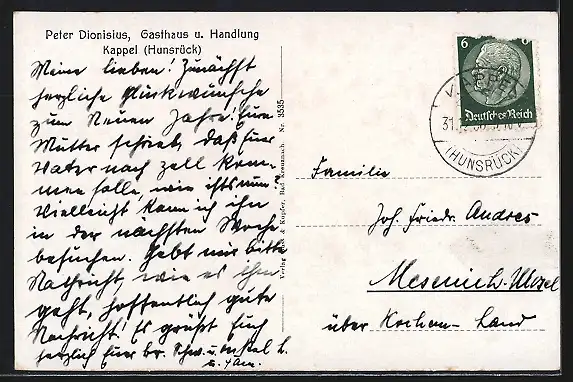 Peter Dionisius, Gasthaus u. Handlung
Kappel (Hunsrück)
Meine lieben! Zunächst
herzliche Glückwünsche
zum Neuen Jahre! Eure
Mutter schrieb, daß Euer
Vater nach Zell kom-
men solle, wie ists nun?
Vielleicht kann ich ihn
in der nächsten Woche
besuchen. Gebt mir bitte
Nachricht, wie es ihm
geht, hoffentlich gute
Nachricht! Es grüßt Euch
herzlich Euer br. Schw. u. Onkel
Nr. 3535
Bad Kreuznach
6
6
Deutsches Reich
KAPPEL
31.12.36
(HUNSRÜCK)
Familie
Joh. Friedr. Andres
Mesenich-Mosel
über Kochem-Land